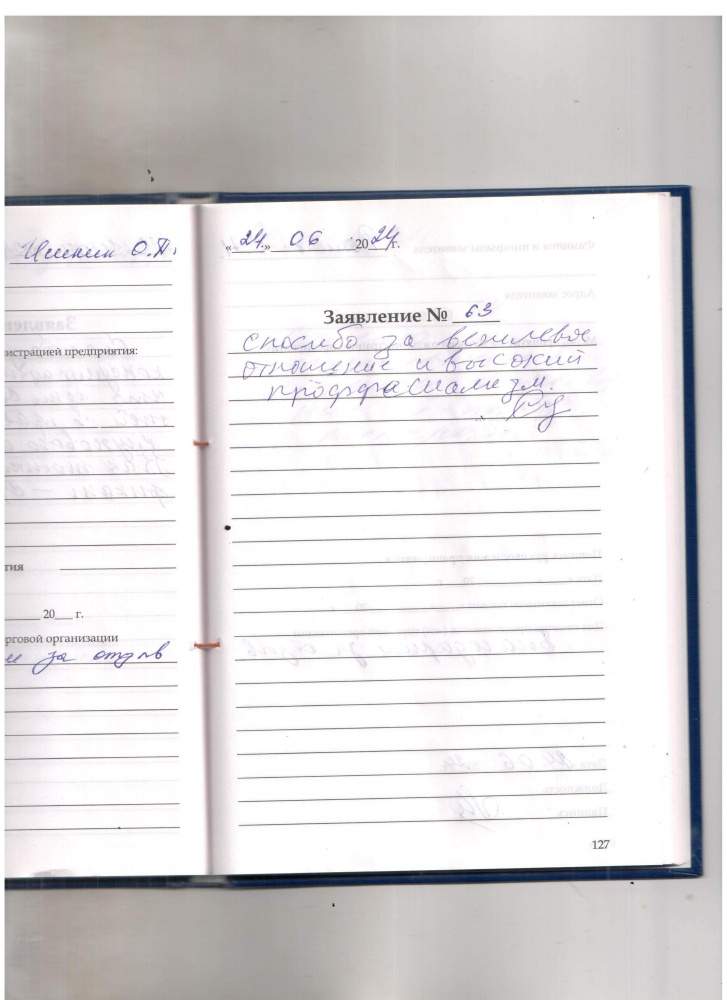 Ишкин О.П.
истрацией предприятия:
тия
20___ г.
рговой организации
и за отзыв
«24» 06 2024г.
Заявление № 63
спосибо за вежлевое
отношение и высокий
профффасиализм.
127